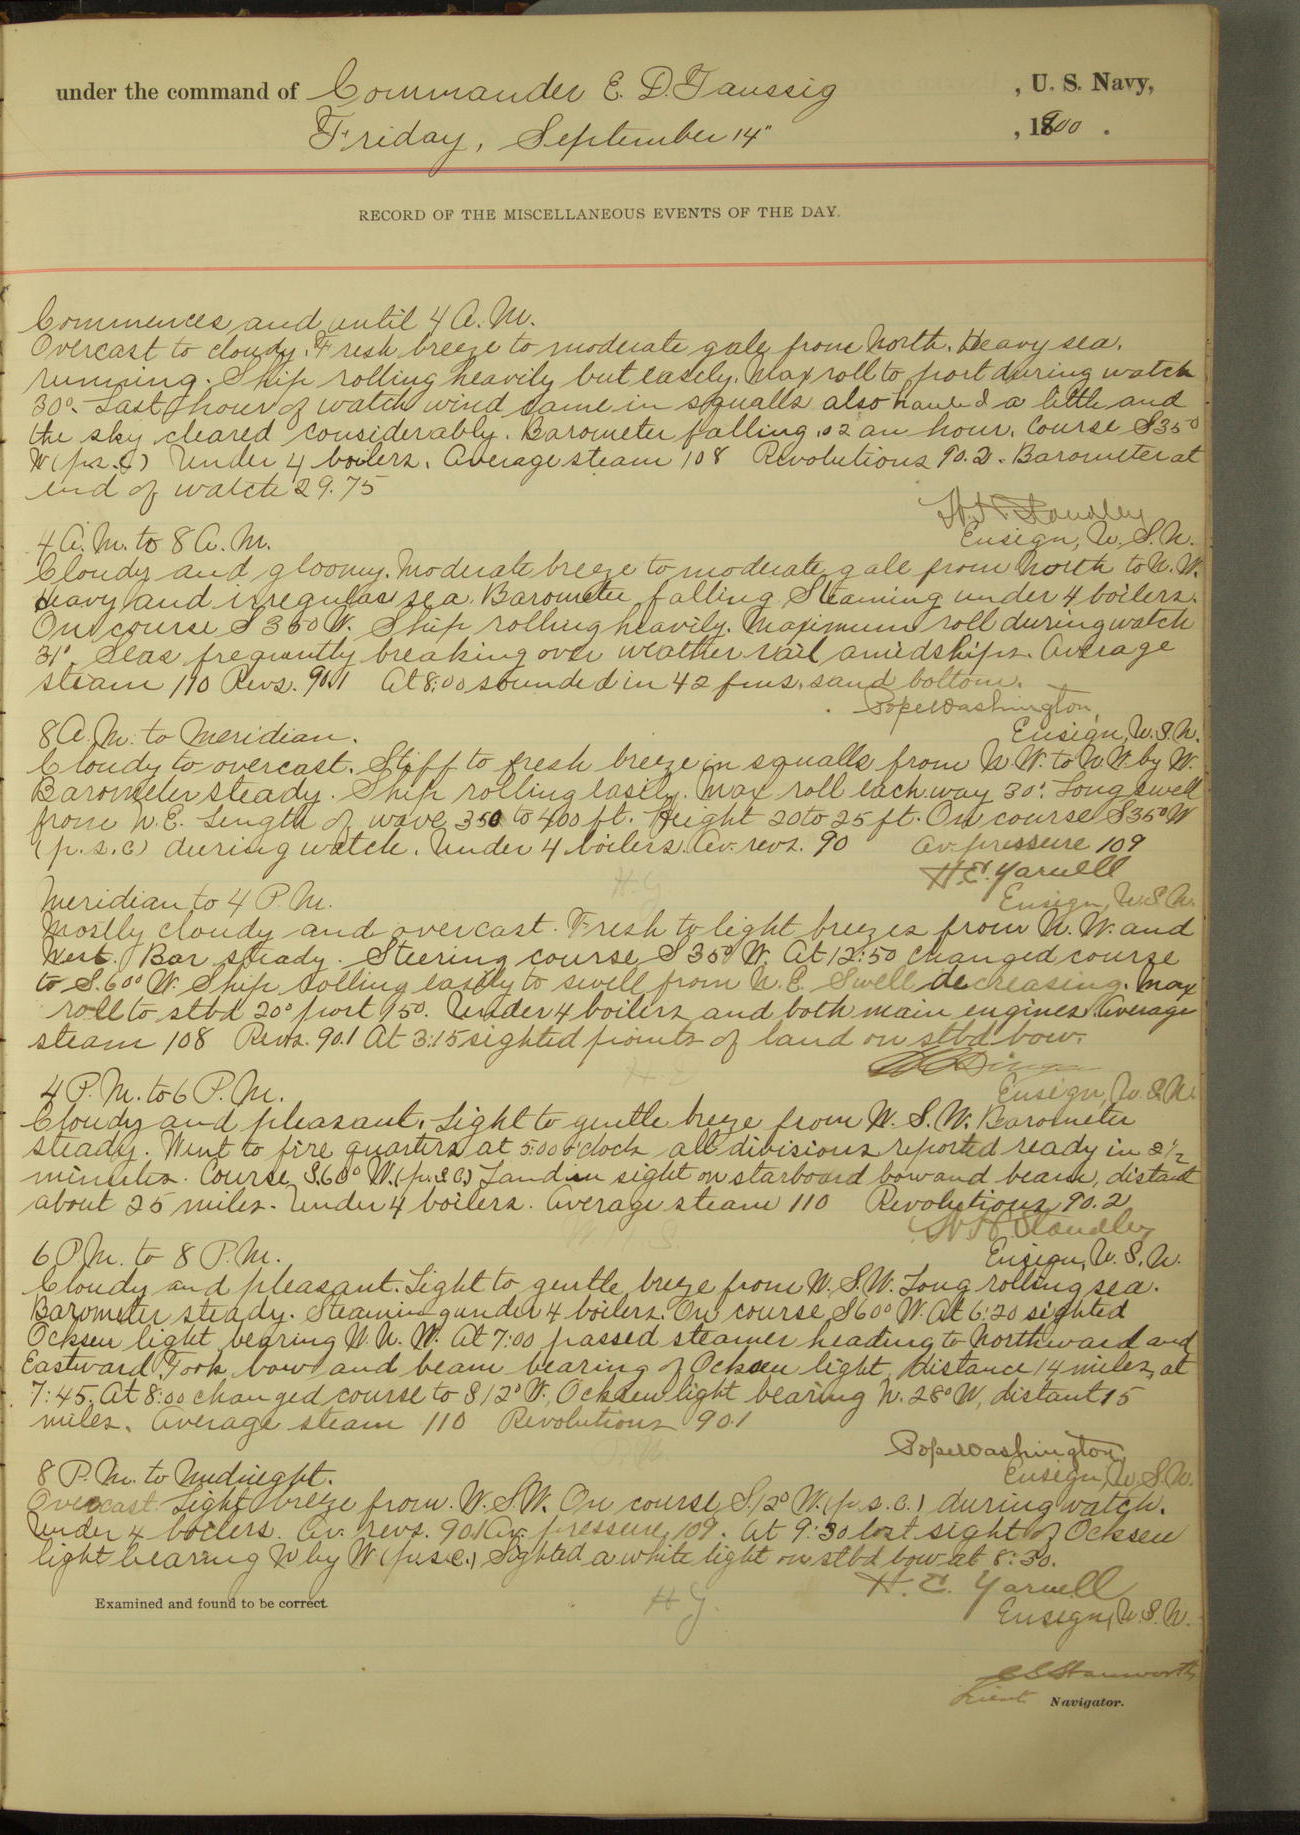 under the command of Commander E. D. Taussig , U. S. Navy,
Friday, September 14" , 1900 .
RECORD OF THE MISCELLANEOUS EVENTS OF THE DAY.
Commences and until 4 A. M.
Overcast to cloudy. Fresh breeze to moderate gale from North. Heavy sea.
running. Ship rolling heavily but easely. Max roll to port during watch
30°. Last hour of watch wind came in squalls also hauled a little and
the sky cleared considerably. Barometer falling .02 an hour. Course S35°
W (p.s.c.) Under 4 boilers. Average steam 108 Revolutions 90.2. Barometer at
end of watch 29.75
W. H. Standley
Ensign, U. S. N.
4 A. M. to 8 A. M.
Cloudy and gloomy. Moderate breeze to moderate gale from North to N. W.
Heavy and irregular sea. Barometer falling. Steaming under 4 boilers.
On course S 35° W. Ship rolling heavily. Maximum roll during watch
31°. Seas frequently breaking over weather rail amidships. Average
steam 110 Revs. 90.1 At 8:00 sounded in 42 fms. sand bottom.
Pope Washington,
Ensign, U. S. N.
8 A. M. to Meridian.
Cloudy to overcast. Stiff to fresh breeze in squalls from N W. to N W. by W.
Barometer steady. Ship rolling easily. Max roll each way 30°. Long swell
from N. E. Length of wave 350 to 400 ft. Height 20 to 25 ft. On course S35° W
(p. s. c) during watch. Under 4 boilers. Av. revs. 90 Av. pressure 109
H. E. Yarnell
Ensign, U. S. N.
Meridian to 4 P. M.
Mostly cloudy and overcast. Fresh to light breezes from N. W. and
West. Bar steady. Steering course S 35° W. At 12:50 changed course
to S. 60° W. Ship rolling easily to swell from N. E. Swell decreasing. Max
roll to stbd 20° port 15°. Under 4 boilers and both main engines. Average
steam 108 Revs. 90.1 At 3:15 sighted points of land on stbd bow.
Ensign, U. S. N.
4 P. M. to 6 P. M.
Cloudy and pleasant. Light to gentle breeze from W. S. W. Barometer
steady. Went to fire quarters at 5:00 o'clock all divisions reported ready in 2 1/2
minutes. Course S.60° W. (p.s.c.) Land in sight on starboard bow and beam, distant
about 25 miles. Under 4 boilers. Average steam 110 Revolutions 90.2
W. H. Standley
Ensign, U. S. N.
6 P. M. to 8 P. M.
Cloudy and pleasant. Light to gentle breeze from W. S. W. Long rolling sea.
Barometer steady. Steaming under 4 boilers. On course S60° W. At 6:20 sighted
Ocksen light bearing W N. W. At 7:00 passed steamer heading to Northward and
Eastward. Took bow and beam bearing of Ocksen light, distance 14 miles, at
7:45. At 8:00 changed course to S12° W., Ocksen light bearing N. 28° W, distant 15
miles. Average steam 110 Revolutions 90.1
Pope Washington,
Ensign, U. S. N.
8 P. M. to Midnight.
Overcast. Light breeze from W. S. W. On course S.12° W. (p. s. c.) during watch.
Under 4 boilers. Av. revs. 90.1 Av. pressure, 109. At 9:30 lost sight of Ocksen
light bearing N by W (p.s.c.) Sighted a white light on stbd bow at 8:30.
H. E. Yarnell
Ensign, U. S. N.
Examined and found to be correct.
C S Stanworth
Lieut Navigator.